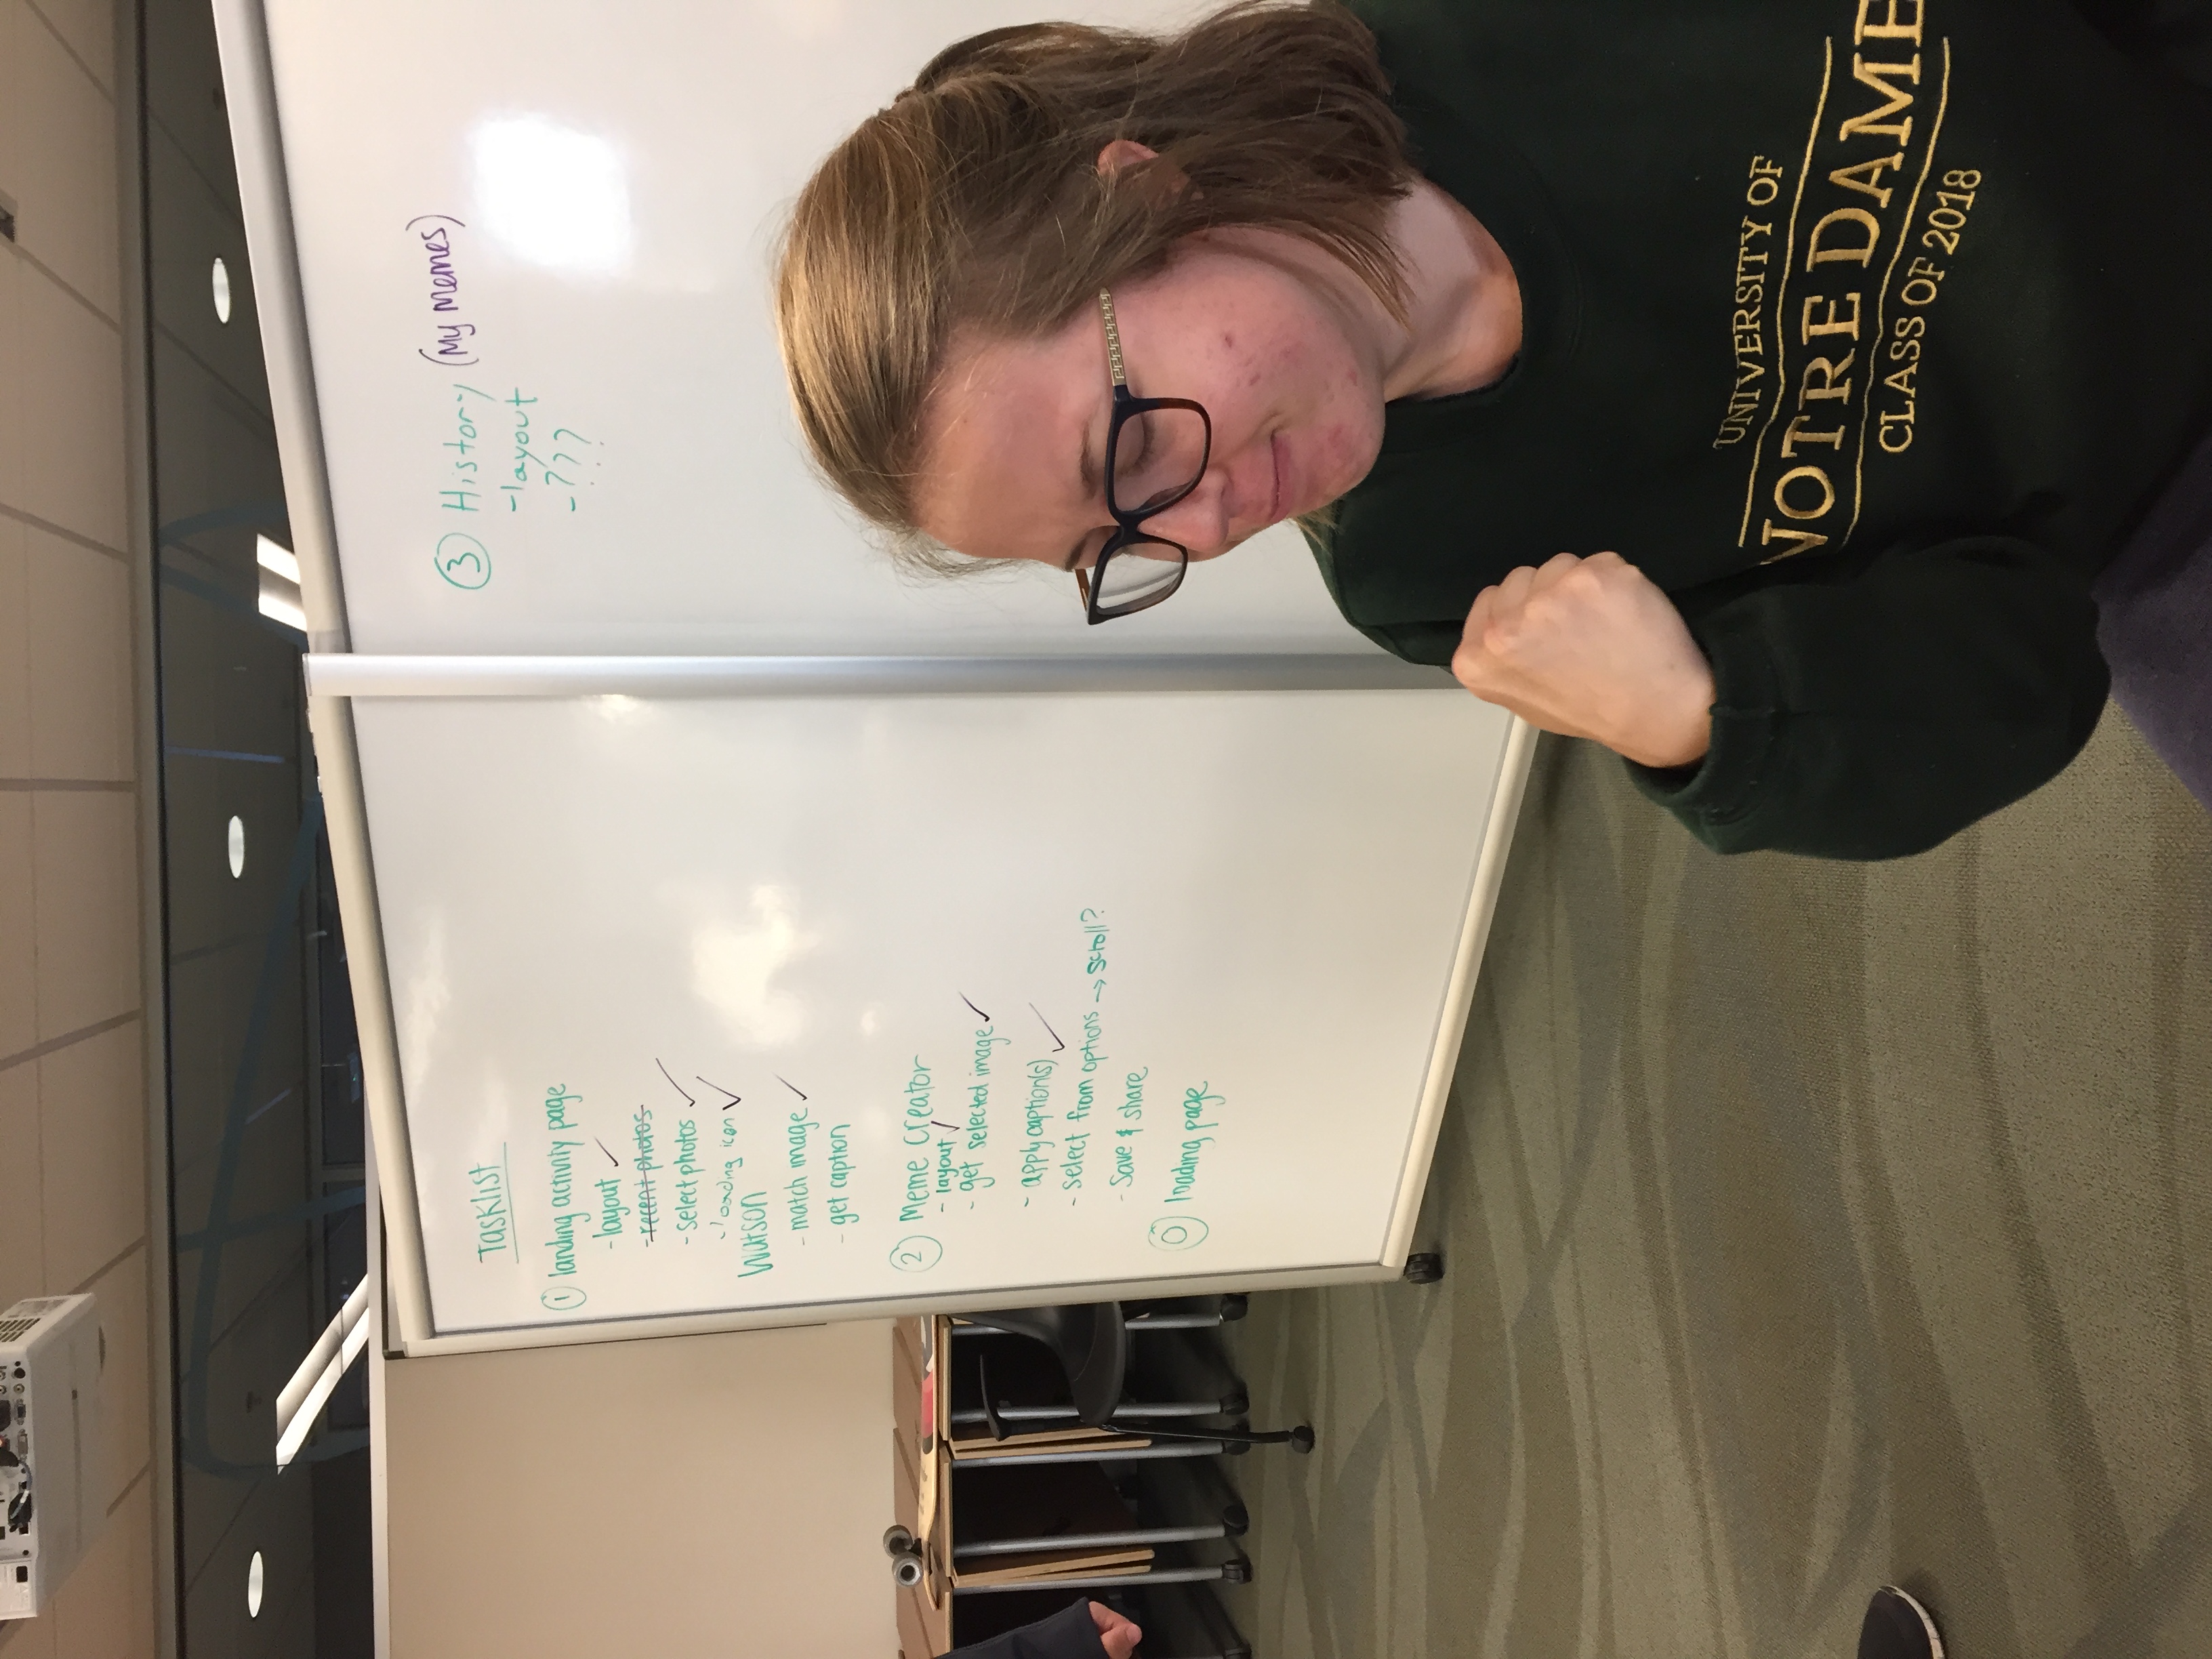 Tasklist
① landing activity page
- layout ✓
- recent photos
- select photos ✓
- loading icon ✓
Watson
- match image ✓
- get caption
② Meme Creator
- layout ✓
- get selected image ✓
- apply caption(s) ✓
- select from options → scroll?
- Save & share
⓪ loading page
③ History (My Memes)
- layout
- ???
UNIVERSITY OF
NOTRE DAME
CLASS OF 2018